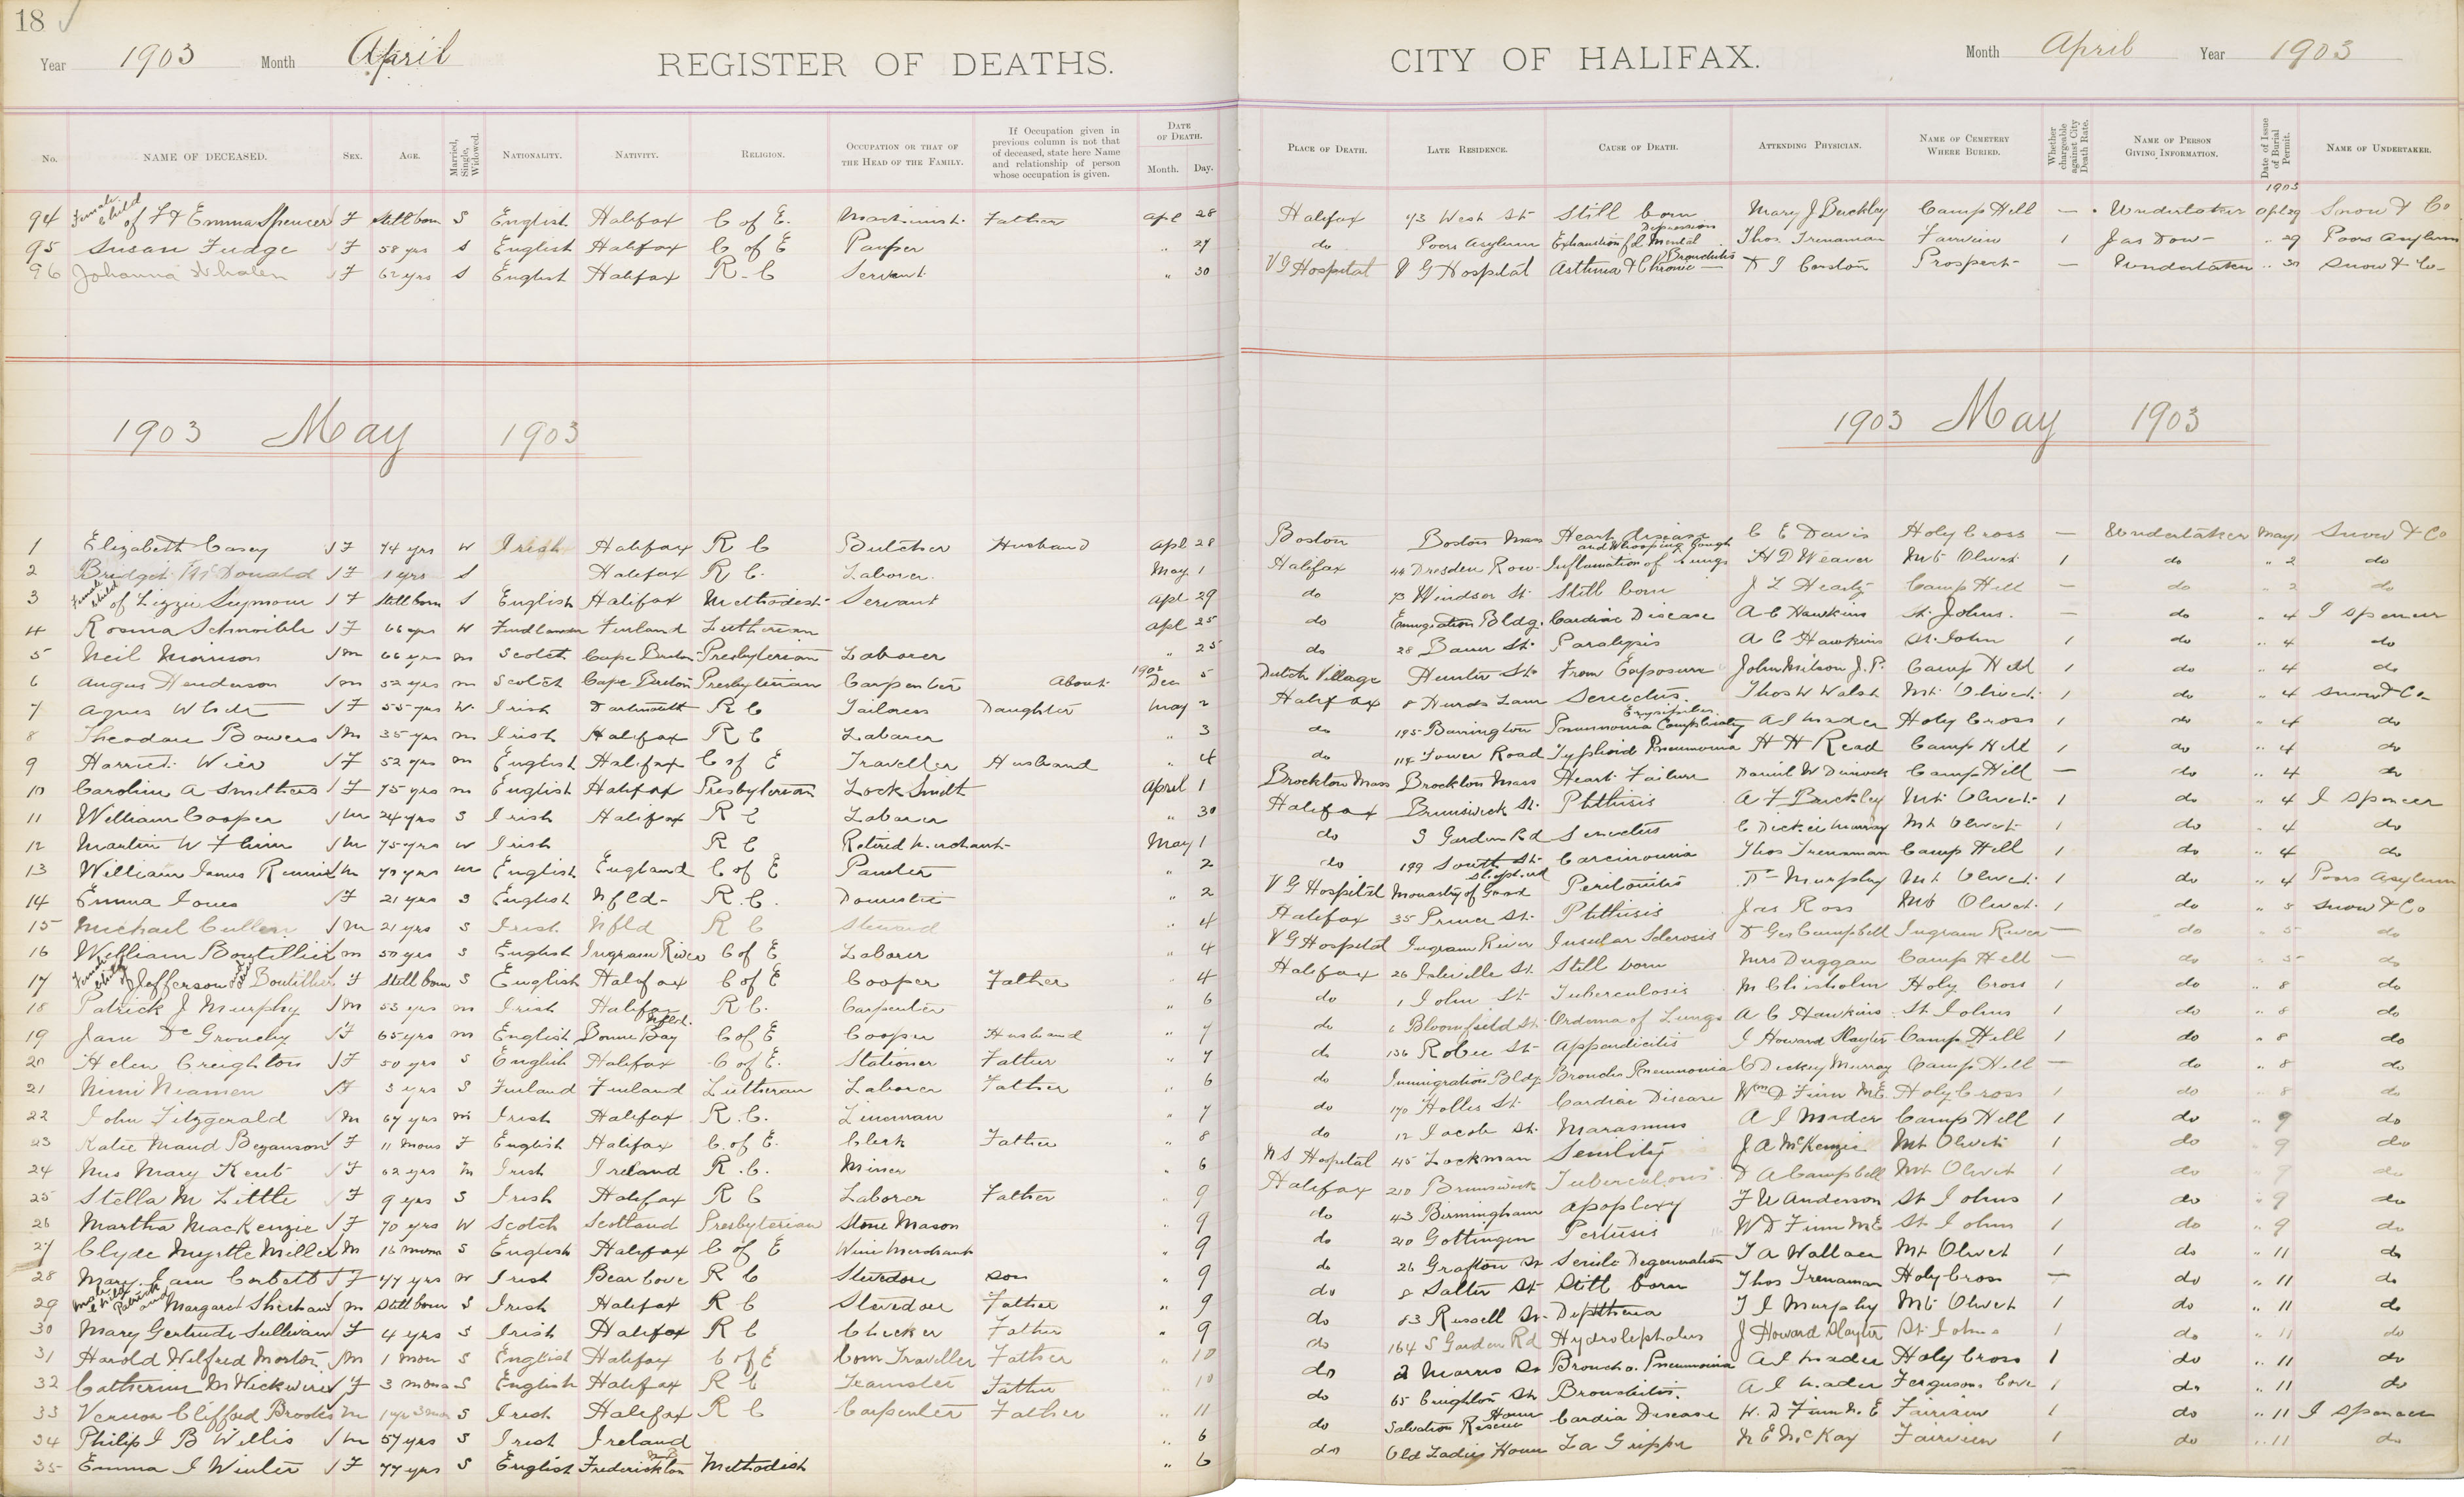 18 ✓
Year 1903 Month April REGISTER OF DEATHS. CITY OF HALIFAX. Month April Year 1903
No. NAME OF DECEASED. SEX. AGE. Married, Single, Widowed. NATIONALITY. NATIVITY. RELIGION. OCCUPATION OR THAT OF THE HEAD OF THE FAMILY. If Occupation given in previous column is not that of deceased, state here Name and relationship of person whose occupation is given. DATE OF DEATH. Month. Day. PLACE OF DEATH. LATE RESIDENCE. CAUSE OF DEATH. ATTENDING PHYSICIAN. NAME OF CEMETERY WHERE BURIED. Whether chargeable against City Death Rate. NAME OF PERSON GIVING INFORMATION. Date of Issue of Burial Permit. NAME OF UNDERTAKER.
1903
94 Female child of F & Emma Spencer F Still born S English Halifax C of E. Machinist Father Apl 28 Halifax 43 West St Still born Mary J Buckley Camp Hill — Undertaker Apl 29 Snow & Co
95 Susan Fudge F 58 yrs S English Halifax C of E Pauper " 27 do Poors Asylum Exhaustion fr Mental Depression Thos. Trenaman Fairview 1 Jas Dow " 29 Poors Asylum
96 Johanna Whalen F 62 yrs S English Halifax R. C Servant " 30 V G Hospital V G Hospital Asthma & Chronic Bronchitis D J Corston Prospect — Undertaker " 30 Snow & Co
1903 May 1903 1903 May 1903
1 Elizabeth Casey F 74 yrs W Irish Halifax R C Butcher Husband Apl 28 Boston Boston Mass Heart disease C E Davis Holy Cross — Undertaker May 1 Snow & Co
2 Bridget McDonald F 1 yrs S Halifax R C. Laborer May 1 Halifax 44 Dresden Row Inflamation of Lungs and Whooping Cough H D Weaver Mt Olivet 1 do " 2 do
3 Female child of Lizzie Seymour F Still born S English Halifax Methodist Servant Apl 29 do Windsor St Still born Camp Hill — do " 2 do
4 Rosina F 66 yrs W Finland Lutherian Apl 25 do Bldg. Cardiac Disease A C Hawkins St. Johns. — do " 4 J Spencer
5 Neil Morrison m 66 yrs m Scotch Cape Breton Presbyterian Laborer " 25 do 28 Bauer St Paralysis A C Hawkins St. John 1 do " 4 do
6 Angus Henderson m 52 yrs m Scotch Cape Breton Presbyterian Carpenter About 1902 Dec 5 Dutch Village Hunter St From Exposure John Wilson J. P. Camp Hill 1 do " 4 do
7 Agnes White F 55 yrs W. Irish Dartmouth R C Tailoress Daughter May 2 Halifax 8 Hurds Lane Senectus Thos W Walsh Mt Olivet 1 do " 4 Snow & Co
8 Theodore Bowers m 35 yrs m Irish Halifax R C Laborer " 3 do 195 Barrington Pneumonia Erysipelas A I Mader Holy Cross 1 do " 4 do
9 Harriet Wier F 52 yrs m English Halifax C of E Traveller Husband " 4 do 114 Tower Road Typhoid Pneumonia H H Read Camp Hill 1 do " 4 do
10 Caroline A Smithers F 75 yrs m English Halifax Presbyterian Lock Smith April 1 Brockton Mass Brockton Mass Heart Failure Daniel W Camp Hill — do " 4 do
11 William Cooper m 24 yrs S Irish Halifax R C Laborer " 30 Halifax Brunswick St. Phthisis A F Buckley Mt Olivet 1 do " 4 J Spencer
12 Martin W Flinn m 75 yrs w Irish R C Retired Merchant May 1 do S Garden Rd Senectus C Dickie Murray Mt Olivet 1 do " 4 do
13 William James m 70 yrs English England C of E Painter " 2 do 199 South St Carcinoma Thos Trenaman Camp Hill 1 do " 4 do
14 Emma Jones F 21 yrs S English Nfld R. C. Domestic " 2 V G Hospital Monastry of Good Shepherd Peritonitis Dr Murphy Mt Olivet 1 do " 4 Poors Asylum
15 Michael Cullen m 21 yrs S Irish Nfld R C Steward " 4 Halifax 35 Prince St. Phthisis Jas Ross Mt Olivet 1 do " 5 Snow & Co
16 William Boutillier m 50 yrs S English Ingram River C of E Laborer " 4 V G Hospital Ingram River Insular Sclerosis D Geo Campbell Ingram River — do " 5 do
17 Female child of Jefferson Boutillier F Still born S English Halifax C of E Cooper Father " 4 Halifax 26 Isleville St Still born Mrs Duggan Camp Hill — do " 5 do
18 Patrick J Murphy m 53 yrs m Irish Halifax R C. Carpenter " 6 do 1 John St Tuberculosis M Chisholm Holy Cross 1 do " 8 do
19 Jane De Grouchy F 65 yrs m English Bonne Bay Nfld. C of E Cooper Husband " 7 do 6 Bloomfield St Oedema of Lungs A C Hawkins St Johns 1 do " 8 do
20 Helen Creighton F 50 yrs S English Halifax C of E. Stationer Father " 7 do 136 Robie St Appendicitis J Howard Slayter Camp Hill 1 do " 8 do
21 Nimi Niamen F 3 yrs S Finland Finland Lutheran Laborer Father " 6 do Immigration Bldg Broncho Pneumonia C Dickey Murray Camp Hill — do " 8 do
22 John Fitzgerald m 67 yrs m Irish Halifax R. C. Lineman " 7 do 170 Hollis St. Cardiac Disease Wm D Finn M.E. Holy Cross 1 do " 8 do
23 Katie Maud Bezanson F 11 mons F English Halifax C. of E. Clerk Father " 8 do 12 Jacob St. Marasmus A I Mader Camp Hill 1 do " 9 do
24 Mrs Mary Kent F 62 yrs m Irish Ireland R. C. Miner " 6 N S Hospital 45 Lockman Senility J A McKenzie Mt Olivet 1 do " 9 do
25 Stella M Little F 9 yrs S Irish Halifax R C Laborer Father " 9 Halifax 210 Brunswick Tuberculosis D A Campbell Mt Olivet 1 do " 9 do
26 Martha MacKenzie F 70 yrs W Scotch Scotland Presbyterian Stone Mason " 9 do 43 Birmingham Apoplexy F W Anderson St Johns 1 do " 9 do
27 Clyde Myrtle Miller m 16 mons S English Halifax C of E Wine Merchant " 9 do 210 Gottingen Pertusis W D Finn ME St Johns 1 do " 9 do
28 Mary Jane Corbett F 77 yrs w Irish Bear Cove R C Stevedore son " 9 do 26 Grafton St Senile Degeneration T A Wallace Mt Olivet 1 do " 11 do
29 Male child Patrick and Margaret Sheehan m Still born S Irish Halifax R C Stevedore Father " 9 do 8 Salter St Still born Thos Trenaman Holy Cross — do " 11 do
30 Mary Gertrude Sullivan F 4 yrs S Irish Halifax R C Checker Father " 9 do 83 Russell St. Diphtheria T J Murphy Mt Olivet 1 do " 11 do
31 Harold Wilfred Morton m 1 mon S English Halifax C of E Com Traveller Father " 10 do 164 S Garden Rd Hydrocephalus J Howard Slayter St Johns 1 do " 11 do
32 Catherine M Wickwire F 3 mons S English Halifax R C Teamster Father " 10 do 2 Morris St Broncho. Pneumonia A I Mader Holy Cross 1 do " 11 do
33 Vernon Clifford Brooks m 1 yr 3 mos S Irish Halifax R C Carpenter Father " 11 do 65 Creighton St Bronchitis. A I Mader Fergusons Cove 1 do " 11 do
34 Philip J B Willis m 57 yrs S Irish Ireland " 6 do Salvation Rescue Home Cardia Disease W. D Finn M. E Fairview 1 do " 11 J Spencer
35 Emma J Winter F 77 yrs S English Frederickton NB Methodist " 6 do Old Ladies Home La Grippe N E McKay Fairview 1 do " 11 do